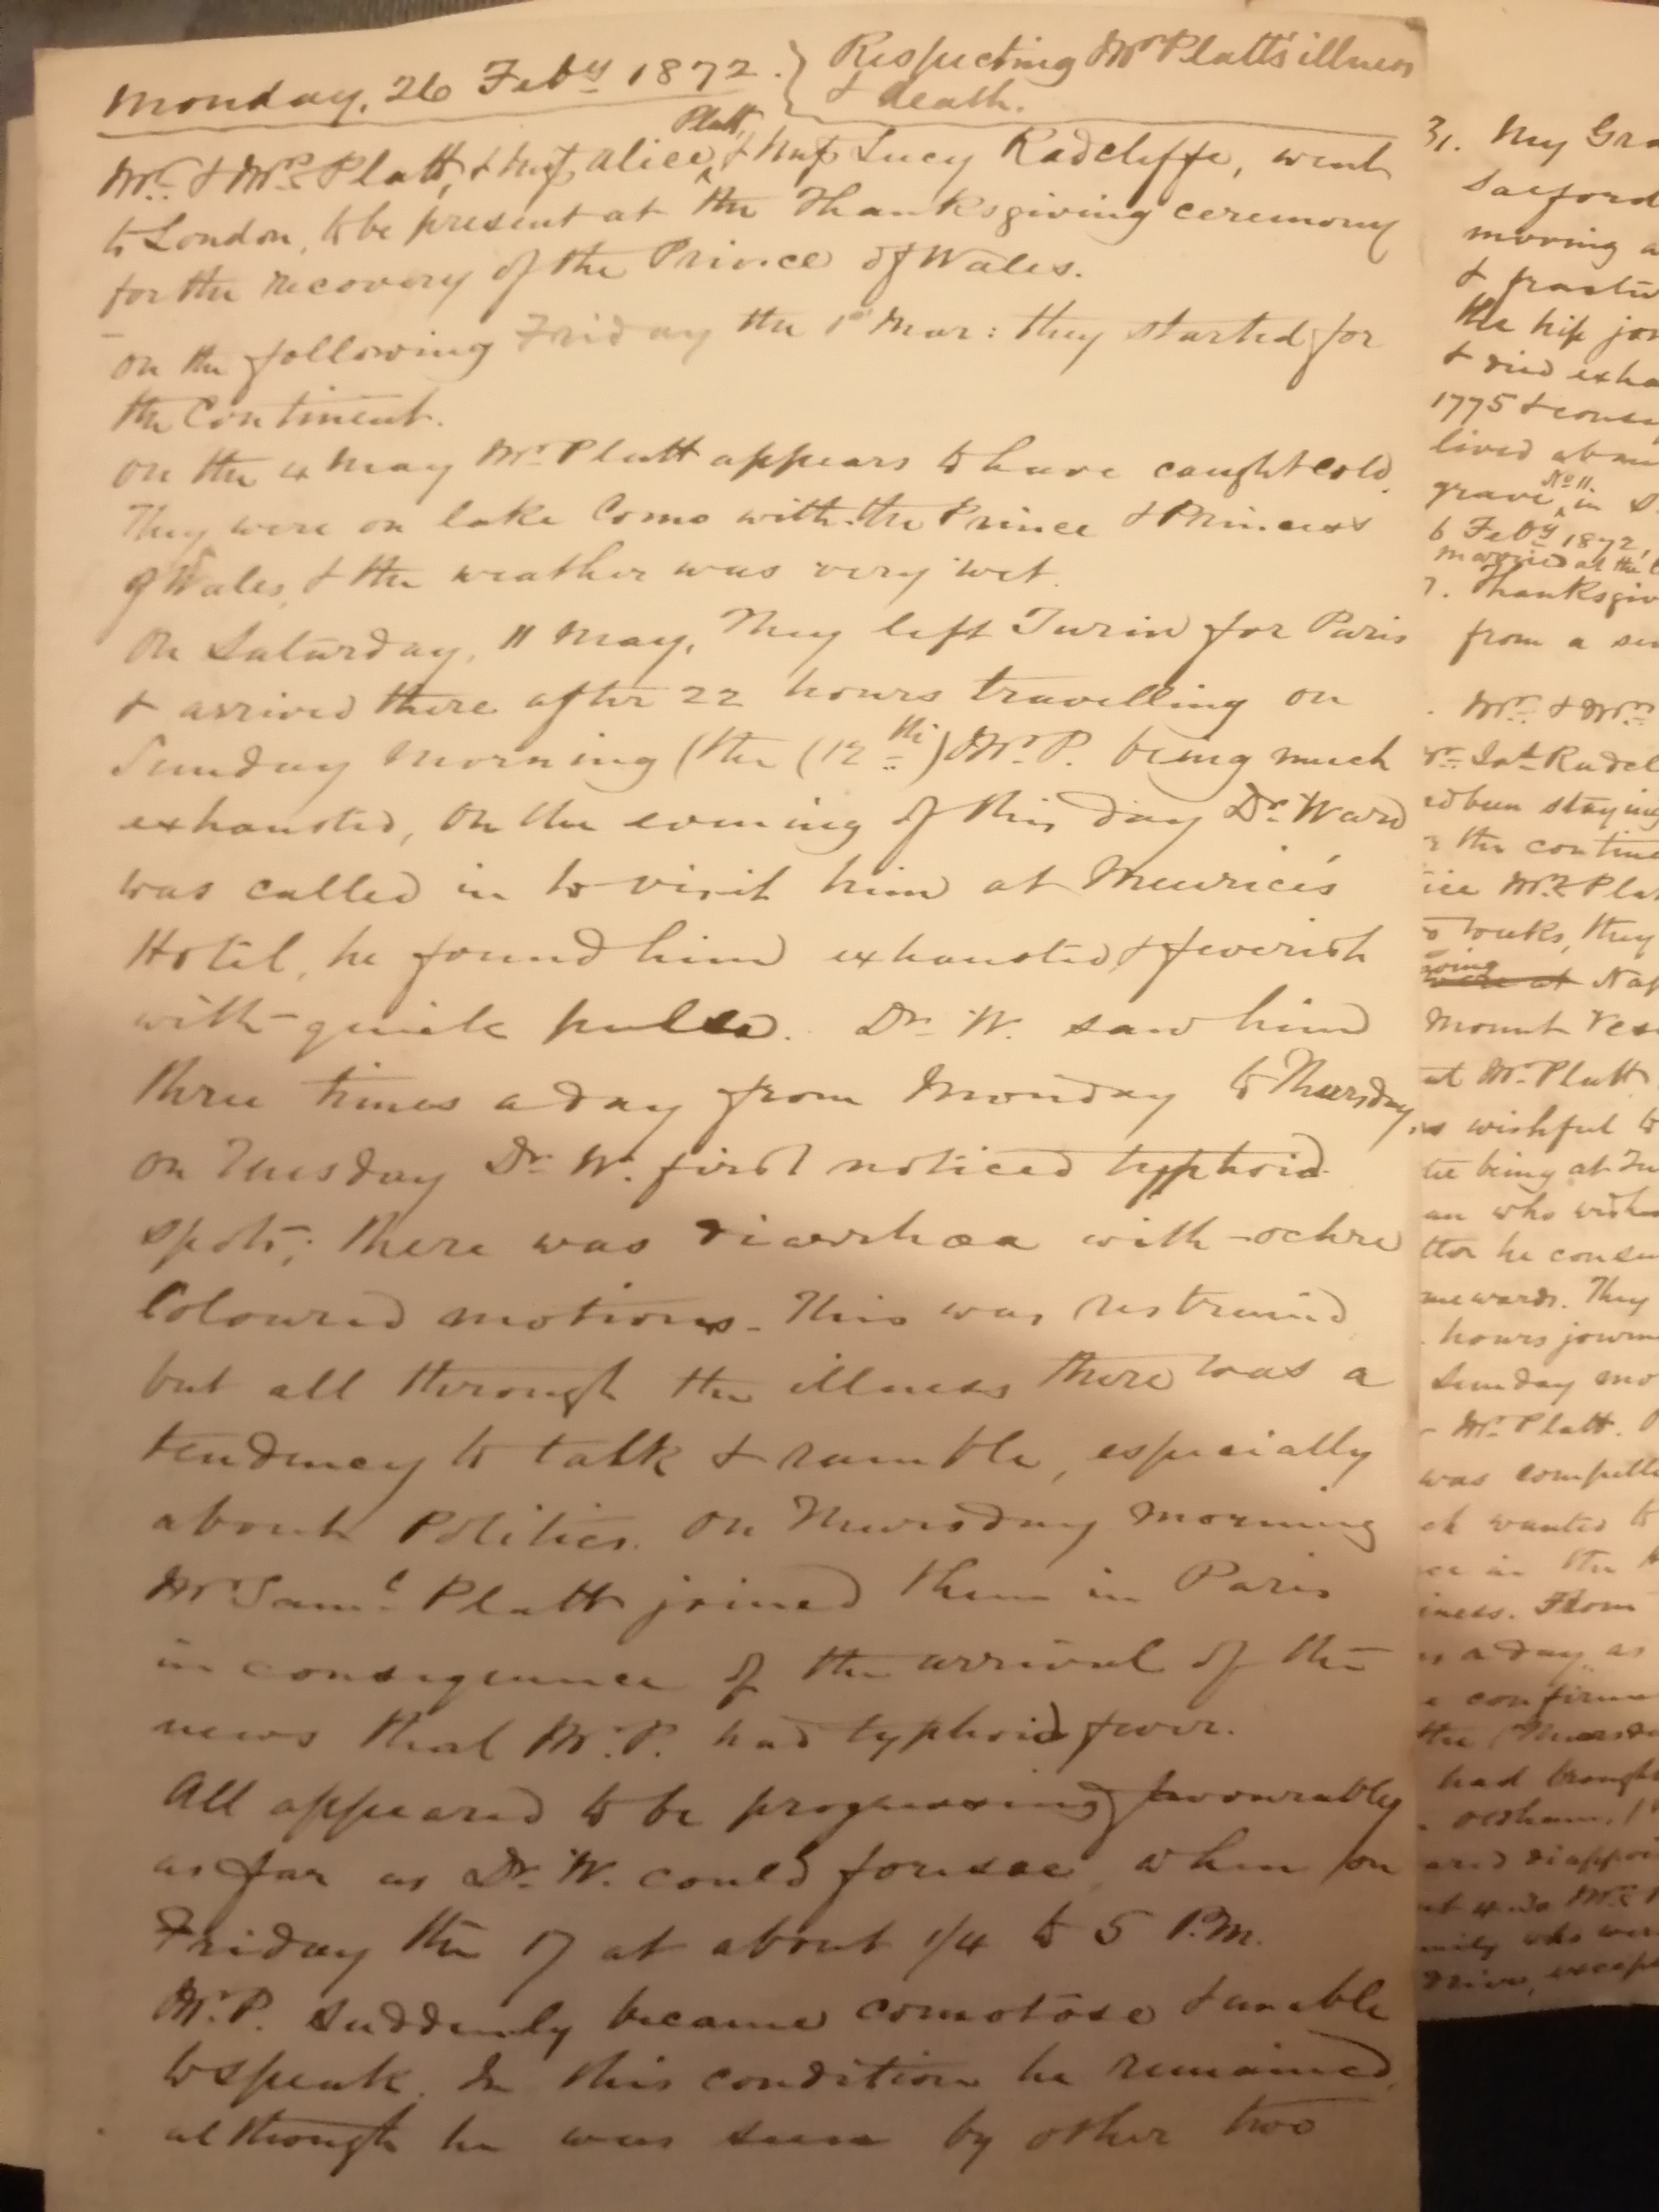 Monday, 26 Feby 1872. } Respecting Mr Platt's illness
& death.
Mr. & Mrs. Platt, & Miss Alice Platt, & Miss Lucy Radcliffe, went
to London, to be present at the Thanksgiving ceremony
for the recovery of the Prince of Wales.
On the following Friday the 1st Mar: they started for
the Continent.
On the 4 May Mr. Platt appears to have caught cold.
They were on lake Como with the Prince & Princess
of Wales, & the weather was very wet.
On Saturday, 11 May, They left Turin for Paris
& arrived there after 22 hours travelling on
Sunday Morning (the (12th) Mr. P. being much
exhausted, On the evening of this day Dr. Ward
was called in to visit him at Meurice's
Hotel, he found him exhausted & feverish
with quick pulse. Dr. W. saw him
three times a day from Monday to Thursday,
On Tuesday Dr. W. first noticed typhoid
spots; there was diarrhœa with -ochre
Coloured motions. This was restrained
but all through the illness there was a
tendency to talk & ramble, especially
about Politics. On Thursday Morning
Mr Saml. Platt joined them in Paris
in consequence of the arrival of the
news that Mr. P. had typhoid fever.
All appeared to be progressing favourably
as far as Dr. W. could foresee, when on
Friday the 17 at about 1/4 to 5 P.M.
Mr. P. suddenly became comotose & unable
to speak. In this condition he remained,
although he was seen by other two
31. My Gra
morning a
the hip joi
1775 &
lived
grave, No 11. in S.
6 Feby 1872,
married at the
7. Thanksgiv
from a
Mr. & Mrs.
staying
the contine
Mrs. Plat
they
were at Nap
Mount Ves
Mr. Platt
wishful to
being at Tu
who
he
They
hours journ
Sunday mo
Mr. Platt.
was
wanted to
in the
From
a day, as
had brough
Oldham,
Mrs.
who were
drive,